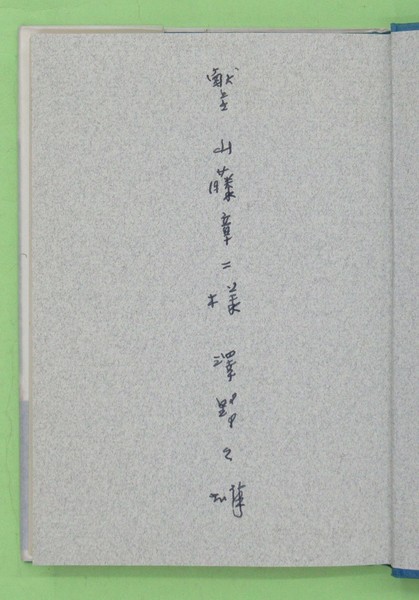 献呈 山藤章二様 澤野久雄